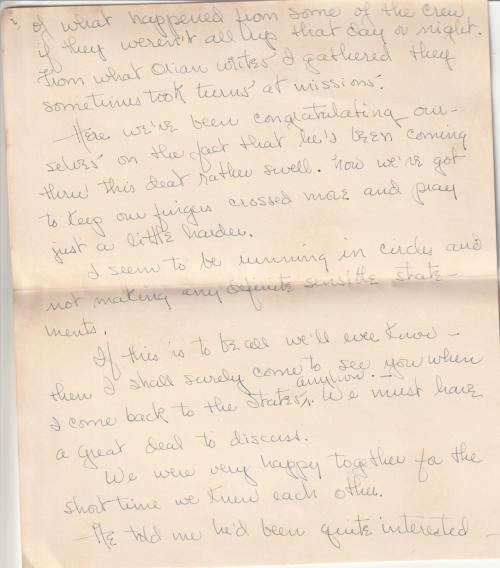 2
of what happened from some of the crew
if they weren't all up that day or night.
From what Orian writes I gathered they
sometimes took turns at missions.
—Here we've been congratulating our-
selves on the fact that he's been coming
thru this deal rather swell. Now we've got
to keep our fingers crossed more and pray
just a little harder.
I seem to be running in circles and
not making any definite sensible state-
ments.
If this is to be all we'll ever know –
then I shall surely come to see you when
anyhow. –
I come back to the States,. We must have
a great deal to discuss.
We were very happy together for the
short time we knew each other.
—He told me he'd been quite interested –